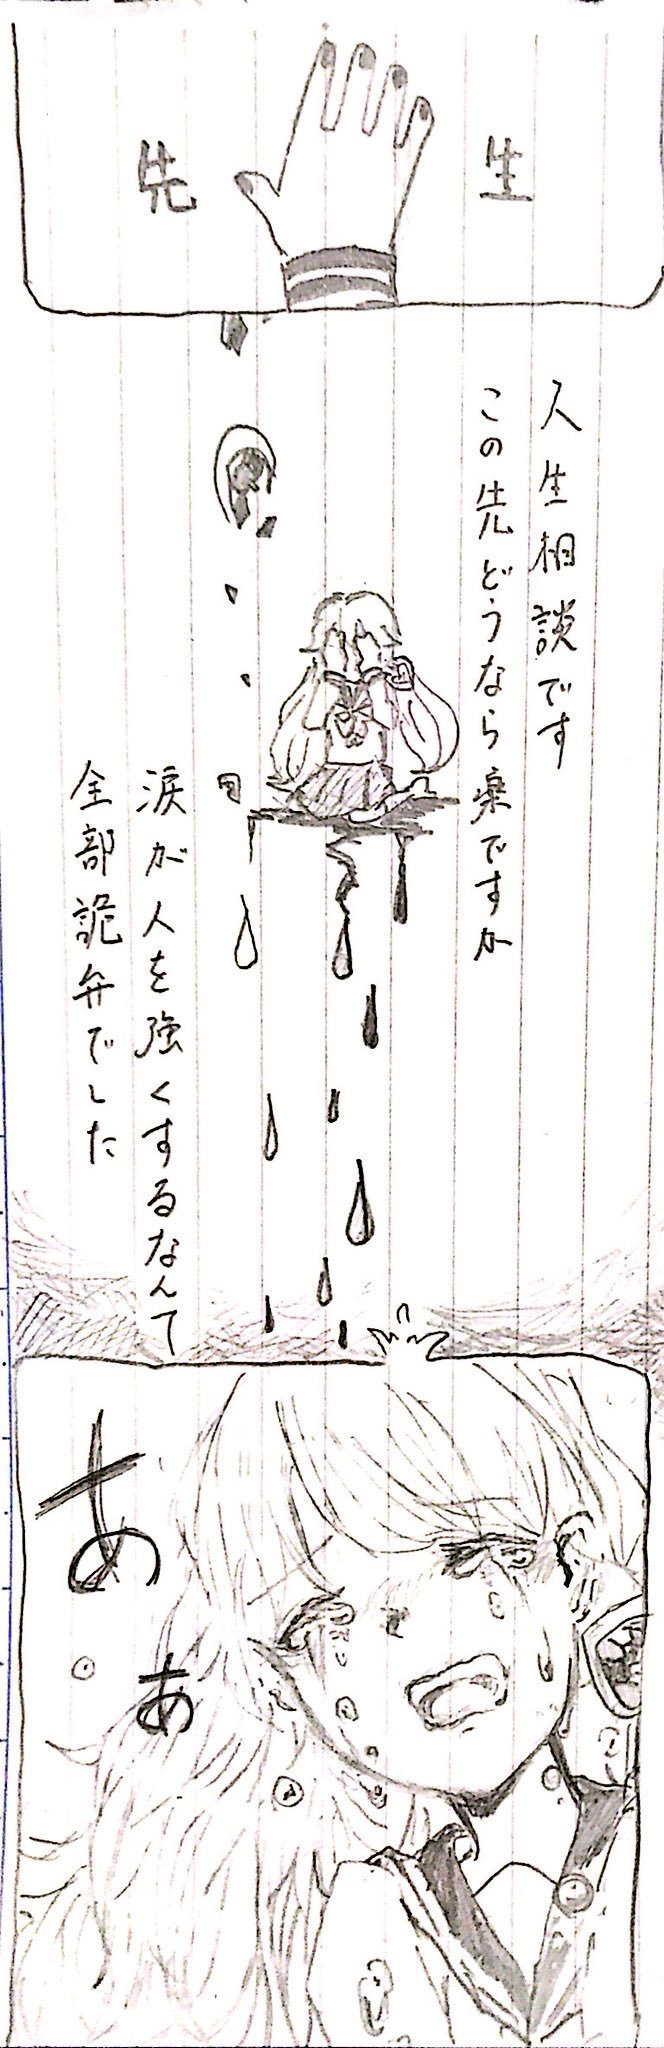 先生
人生相談です
この先どうなら楽ですか
涙が人を強くするなんて
全部詭弁でした
あぁ